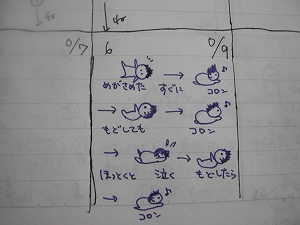 40
0/7 6 0/9
めがさめた → すぐに コロン
→ もどしても → コロン
→ ほっとくと 泣く → もどしたら
→ コロン